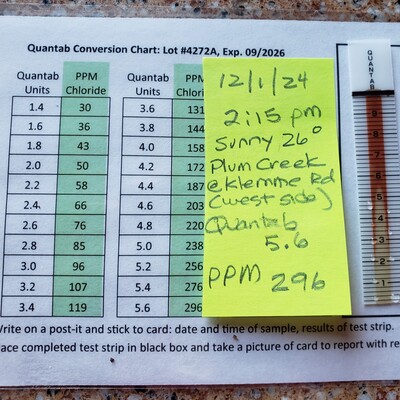 Quantab Conversion Chart: Lot #4272A, Exp. 09/2026
Quantab Units PPM Chloride Quantab Units PPM Chlori
1.4 30 3.6 131
1.6 36 3.8 144
1.8 43 4.0 158
2.0 50 4.2 172
2.2 58 4.4 187
2.4 66 4.6 203
2.6 76 4.8 220
2.8 85 5.0 238
3.0 96 5.2 256
3.2 107 5.4 276
3.4 119 5.6 296
12/1/24
2:15 pm
Sunny 26°
Plum Creek
@ Klemme Rd
(west side)
Quantab
5.6
PPM 296
QUANTAB
9
8
7
6
5
4
3
2
1
Write on a post-it and stick to card: date and time of sample, results of test strip.
ace completed test strip in black box and take a picture of card to report with re